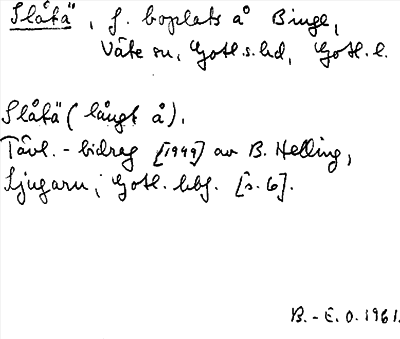 Slåtä, f. boplats å Binge,
Väte sn, Gotl.s.hd, Gotl.l.
Slåtä (långt å).
Tävl.-bidrag [1949] av B. Helling,
Ljugarn, Gotl. hbf. [s. 6].
B.-E.O. 1961.